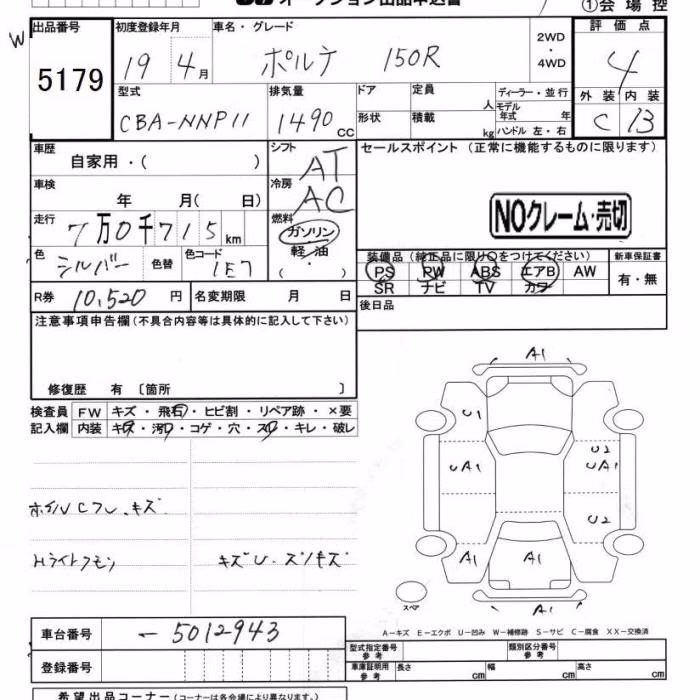 オークション出品申込書
①会場控
W
出品番号 初度登録年月 車名・グレード 評価点
5179 19 4月 ポルテ 150R 2WD・4WD 4
型式 排気量 ドア 定員 人 ディーラー・並行 外装 内装
CBA-NNP11 1490 CC 形状 積載 kg モデル年式 年 ハンドル 左・右 C B
車歴 自家用・( ) シフト AT セールスポイント (正常に機能するものに限ります)
車検 年 月( 日) 冷房 AC
NOクレーム・売切
走行 7万0千715km 燃料 ガソリン 軽油 ( )
色 シルバー 色替 色コード 1E7
装備品 (純正品に限り○をつけてください) 新車保証書
PS PW ABS エアB AW 有・無
SR ナビ TV カワ
R券 10,520円 名変期限 月 日 後日品
注意事項申告欄 (不具合内容等は具体的に記入して下さい)
修復歴 有 〔箇所 〕
検査員 FW キズ・飛石・ヒビ割・リペア跡・×要
記入欄 内装 キズ・汚レ・コゲ・穴・スレ・キレ・破レ
A1
U1
U2
UA1 UA1
U2
A1 A1 A1
A1
スペア
ホイルCフレ、キズ
Hライトクモリ
A-キズ E-エクボ U-凹み W-補修跡 S-サビ C-腐食 XX-交換済
車台番号 -5012943
型式指定番号 参考 類別区分番号 参考
登録番号 車庫証明用 参考 長さ cm 幅 cm 高さ cm
希望出品コーナー (コーナーは各会場により異なります。)